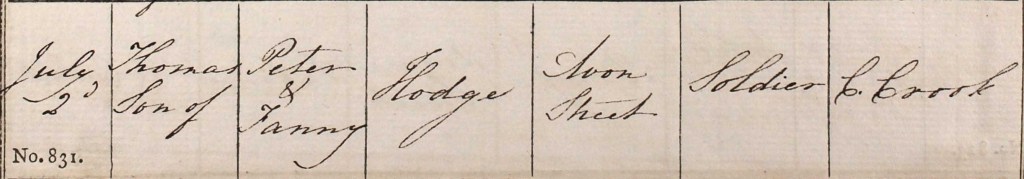 July
2d
No. 831.
Thomas
Son of
Peter
&
Fanny
Hodge
Avon
Street
Soldier
C. Crook